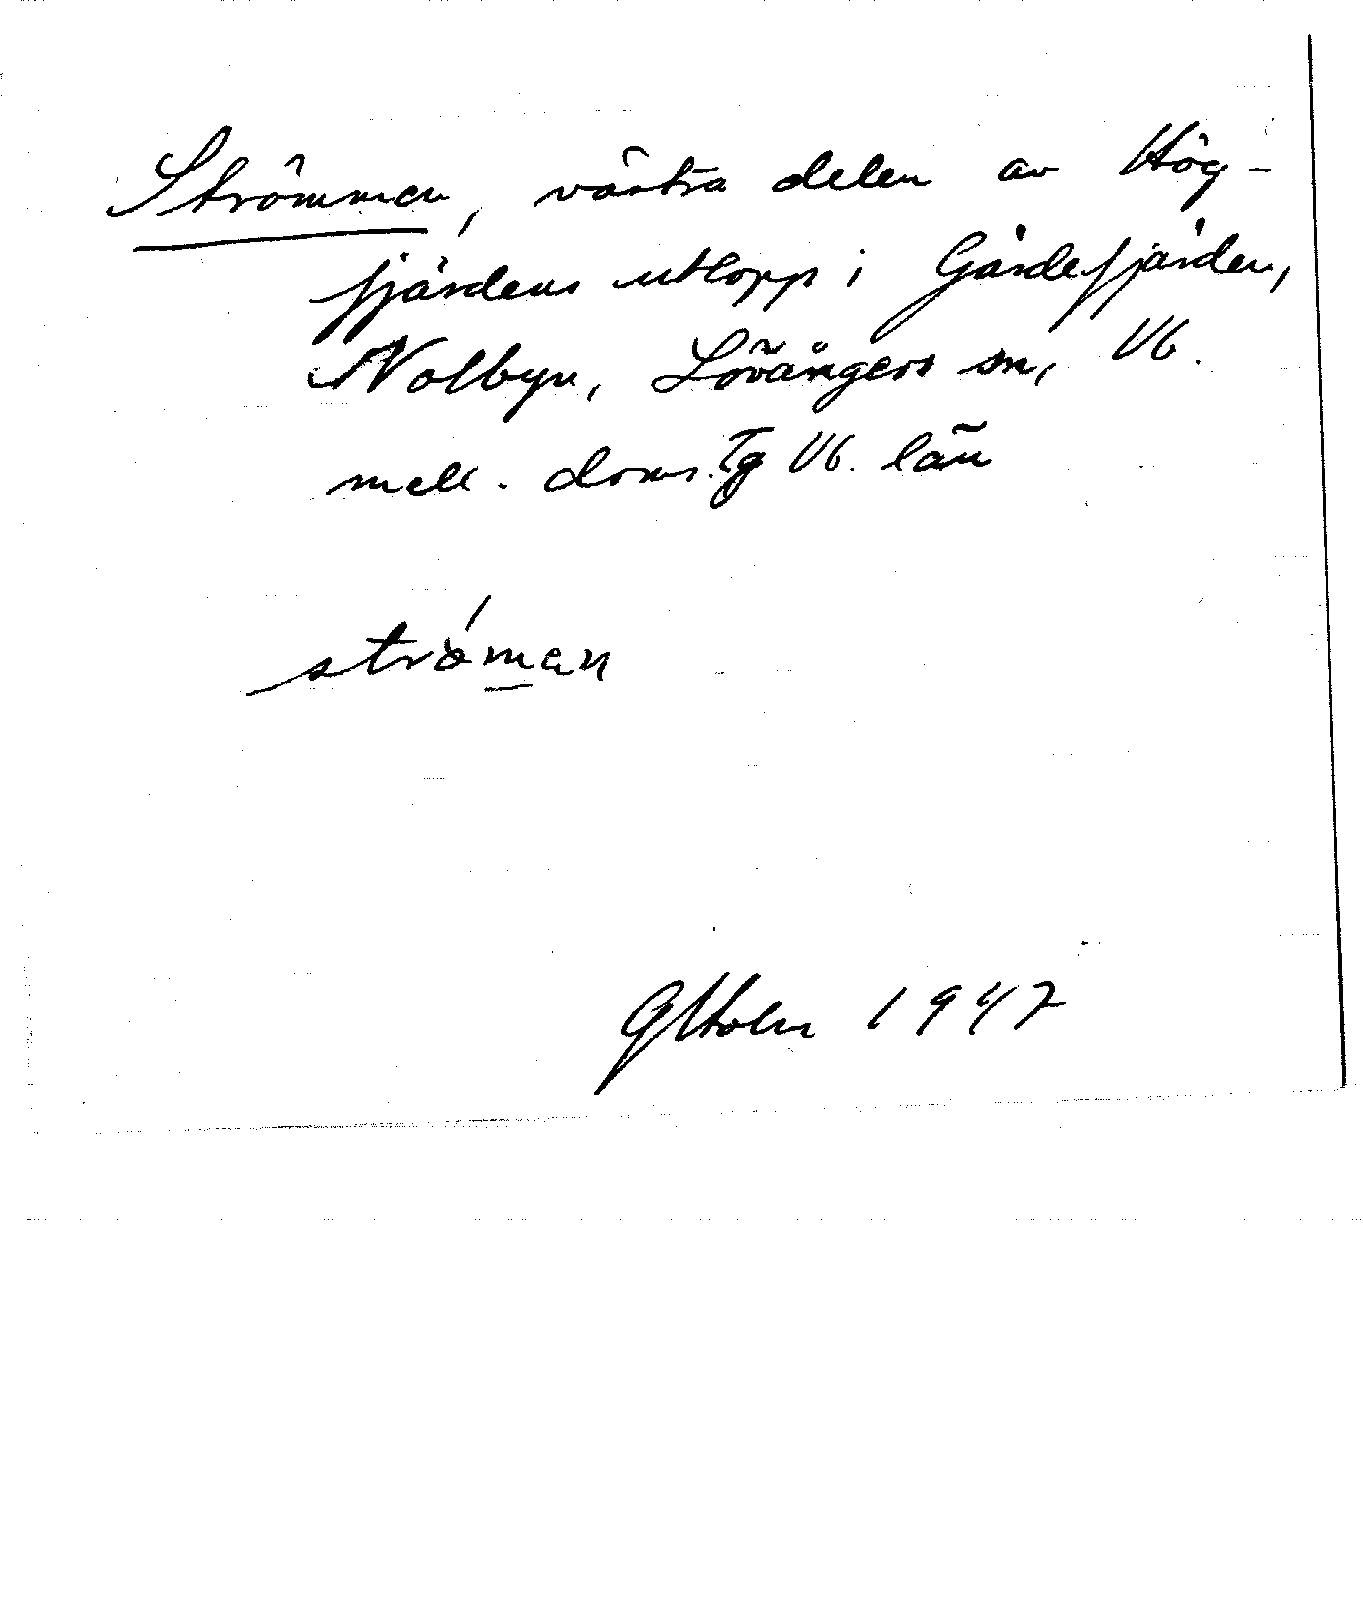 Strömmen, västra delen av Hög-
fjärdens utlopp i Gärdefjärden,
Nolbyn, Lövångers sn, Vb.
mell. doms. Tg Vb. län
stró̀man
GHolm 1947